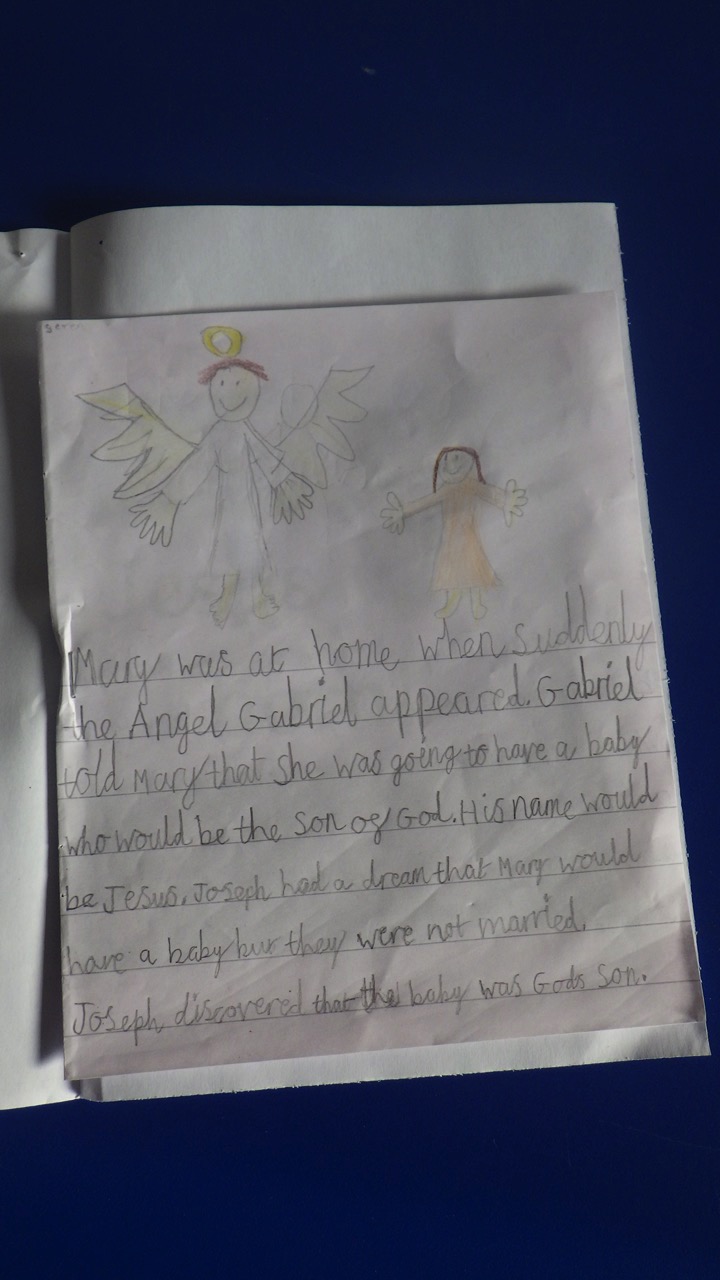 Mary was at home when suddenly
the Angel Gabriel appeared. Gabriel
told Mary that she was going to have a baby
who would be the son of God. His name would
be Jesus. Joseph had a dream that Mary would
have a baby but they were not married.
Joseph discovered that the baby was Gods son.